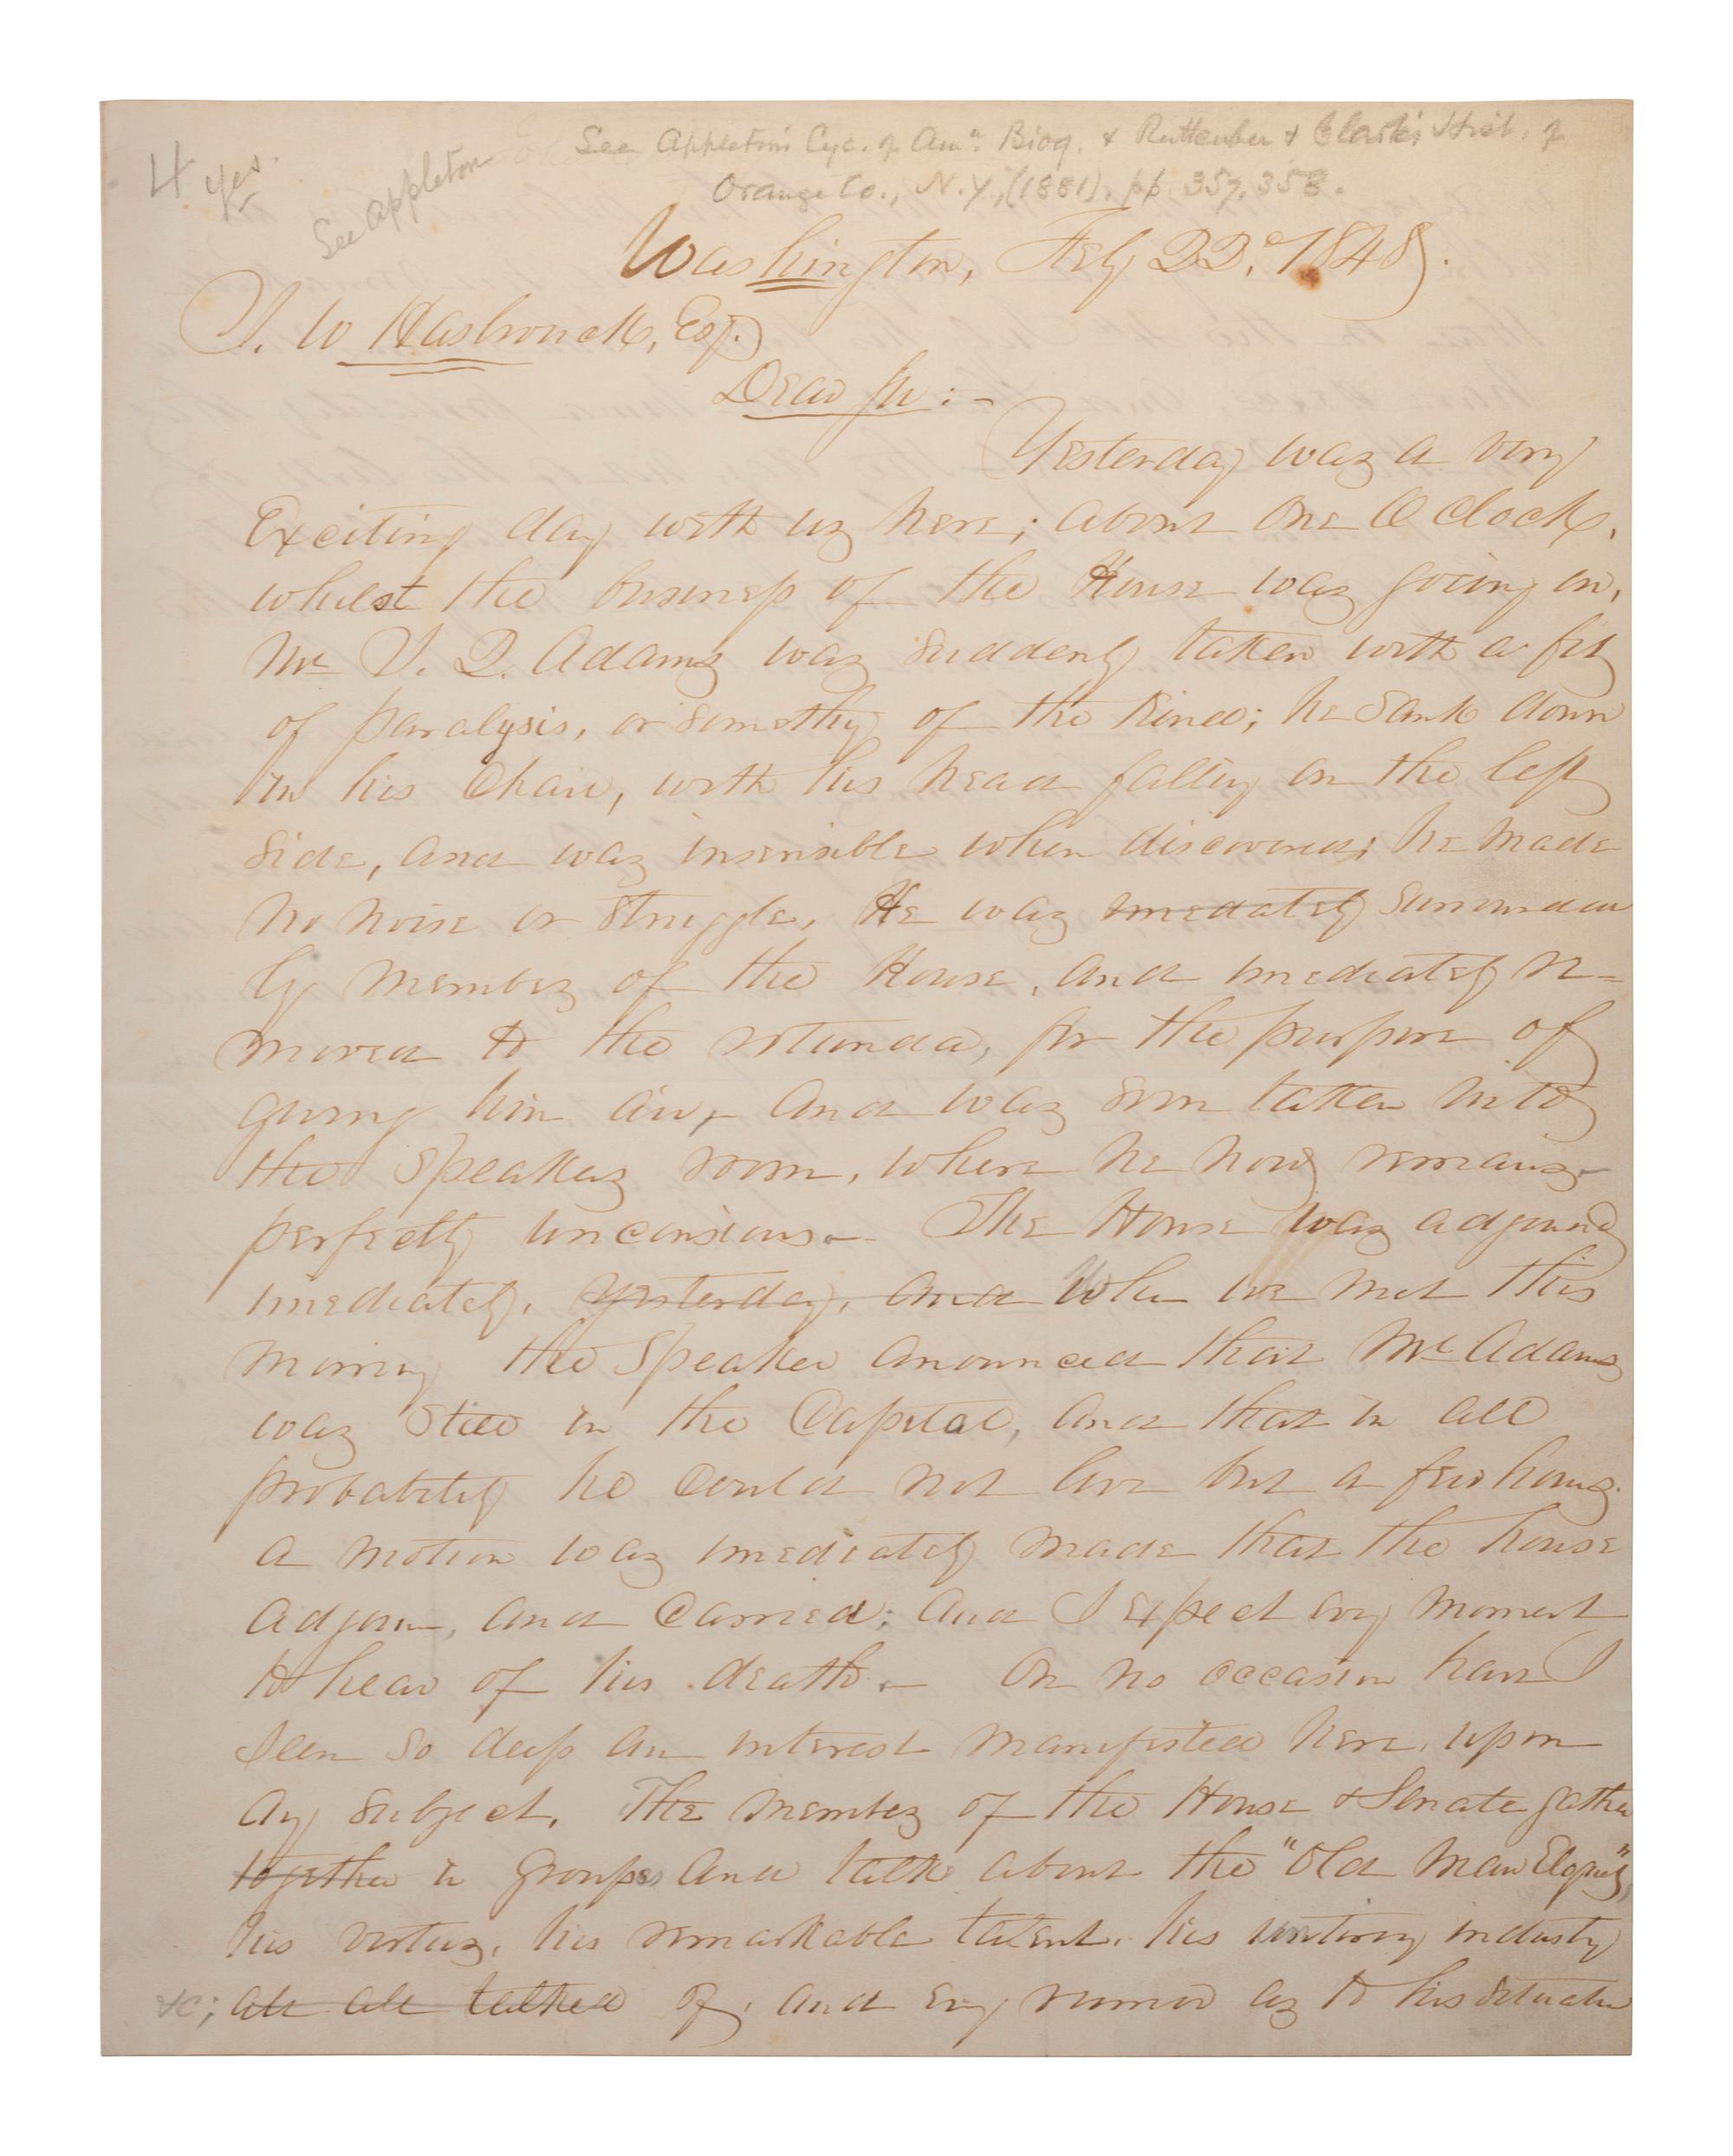 4 yes.
See Appleton
See Appleton's Cyc. of Amn. Biog. & Ruttenber & Clark's Hist. of
Orange Co., N.Y., (1881), pp. 357, 358.
Washington, Feby 22d, 1848.
J. W Hasbrouck, Esq.
Dear Sir : -
Yesterday was a very
Exciting day with us here; about One O Clock,
whilst the business of the House was going on,
Mr J. Q. Adams was suddenly taken with a fit
of paralysis, or somethig of the kind; he sank down
in his Chair, with his head falling on the left
side, and was insensible when discovered; he made
no noise or struggle. He was imedately surrounded
by members of the House, and imediately re-
moved to the rotunda, for the purpose of
giving him air, and was soon taken into
the Speakers room, where he now remains
perfectly unconsious. The House was adjourned
imediately. yesterday, and When we met this
morning the Speaker anounced that Mr Adams
was still in the Capital, and that in all
probability he could not live but a few hours.
a motion was imediately made that the house
adjourn, and Carried; and I expect evry moment
to hear of his death. On no occasion have I
seen so deep an interest manifested here, upon
any subject. The members of the House & Senate gather
together in groups and talk about the "Old Man Eloquent",
his virtues, his remarkable talent, his untiring industry
&c; are all talked of, and evry rumor as to his situation